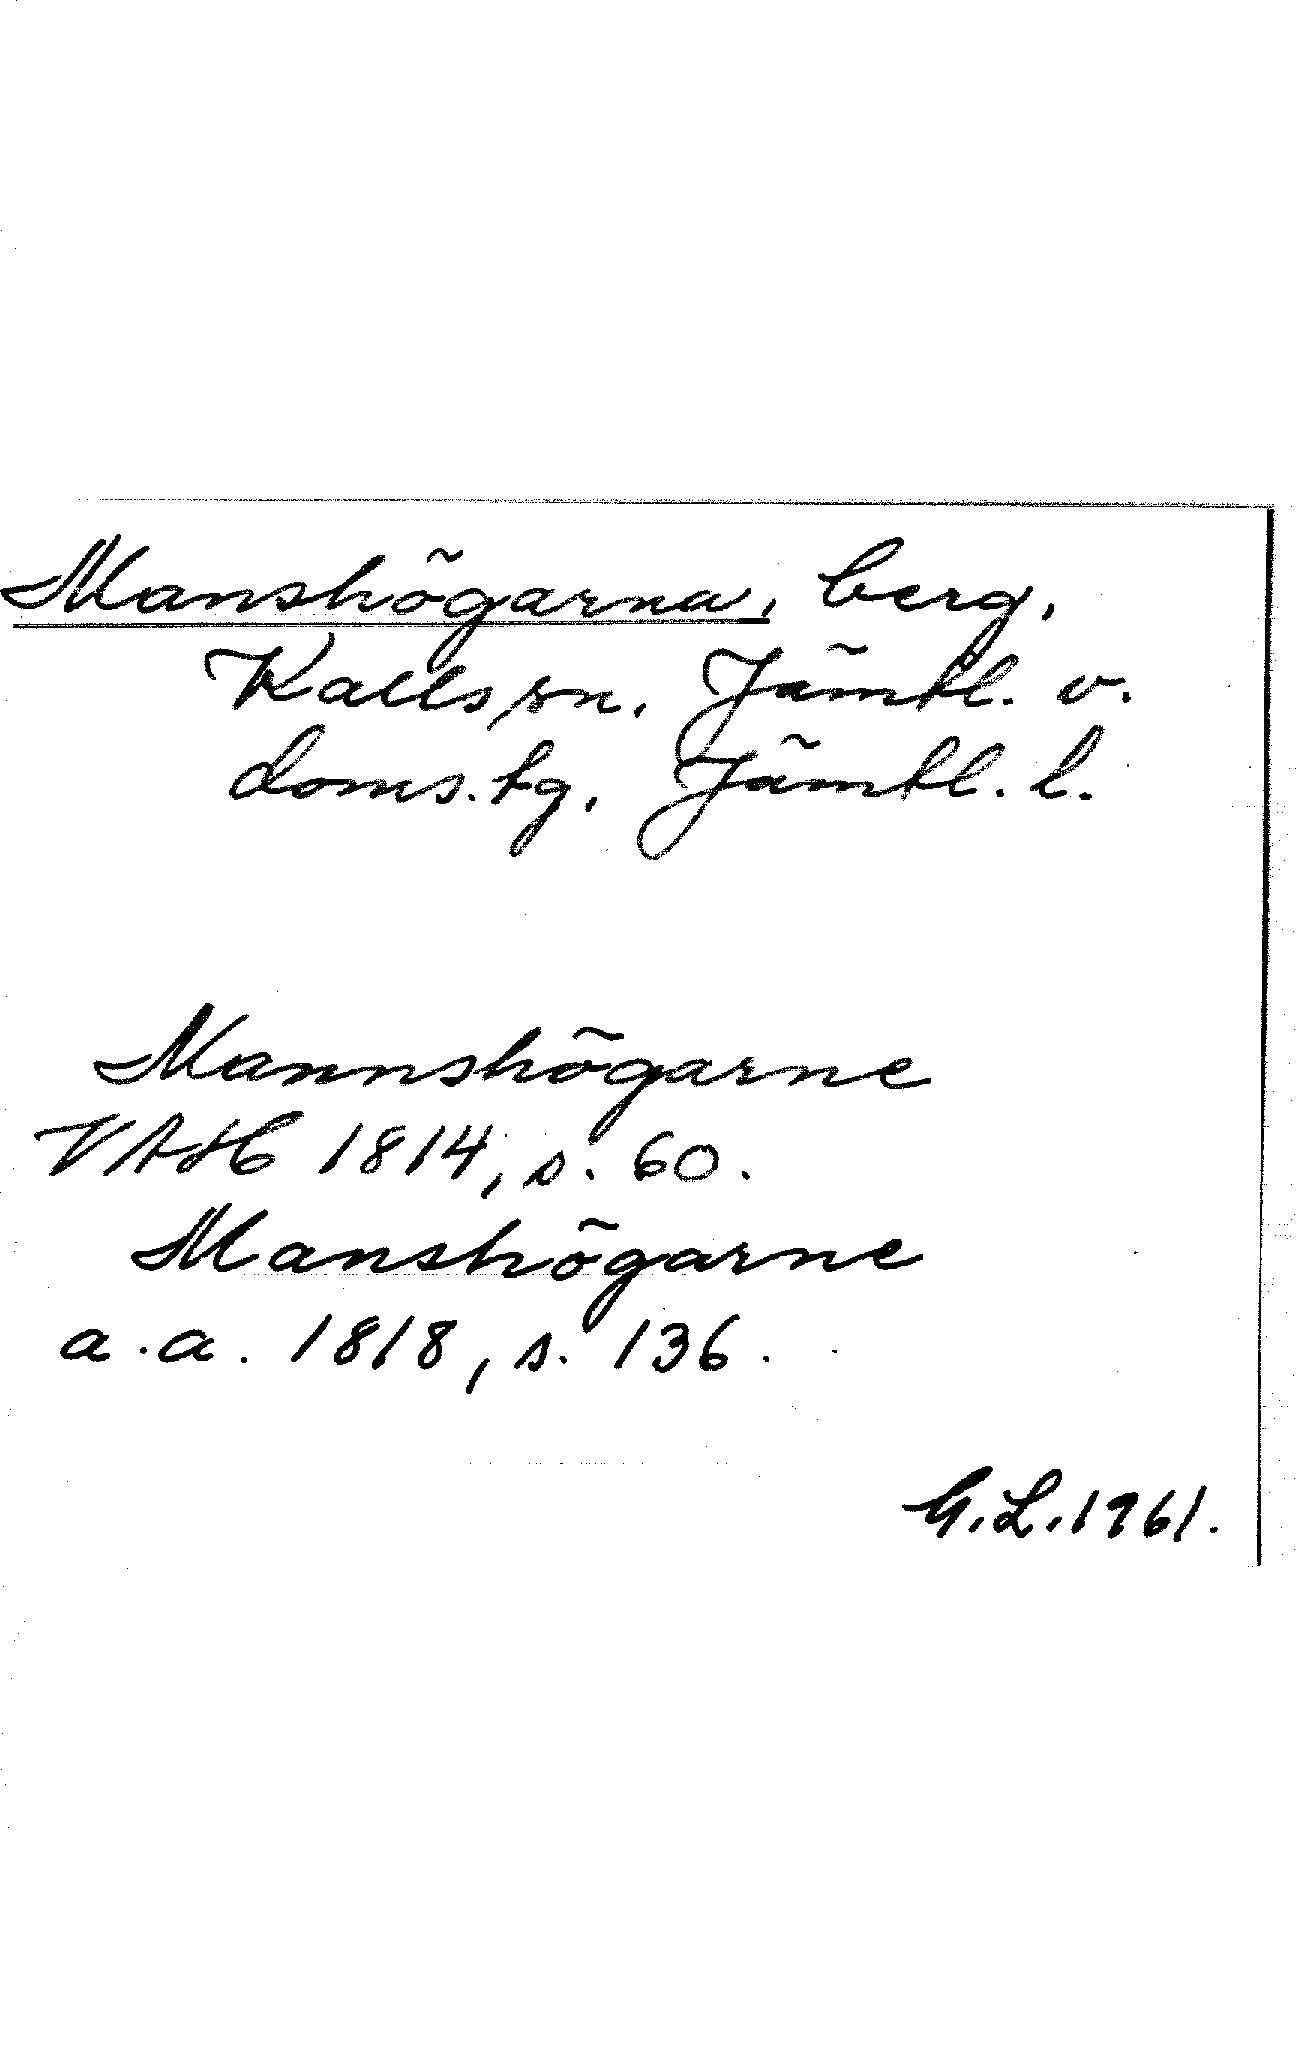 Manshögarna, berg,
Kalls sn, Jämtl. v.
doms.tg, Jämtl. l.
Mannshögarne
VAH 1814, s. 60.
Manshögarne
a.a. 1818, s. 136.
G.L. 1961.